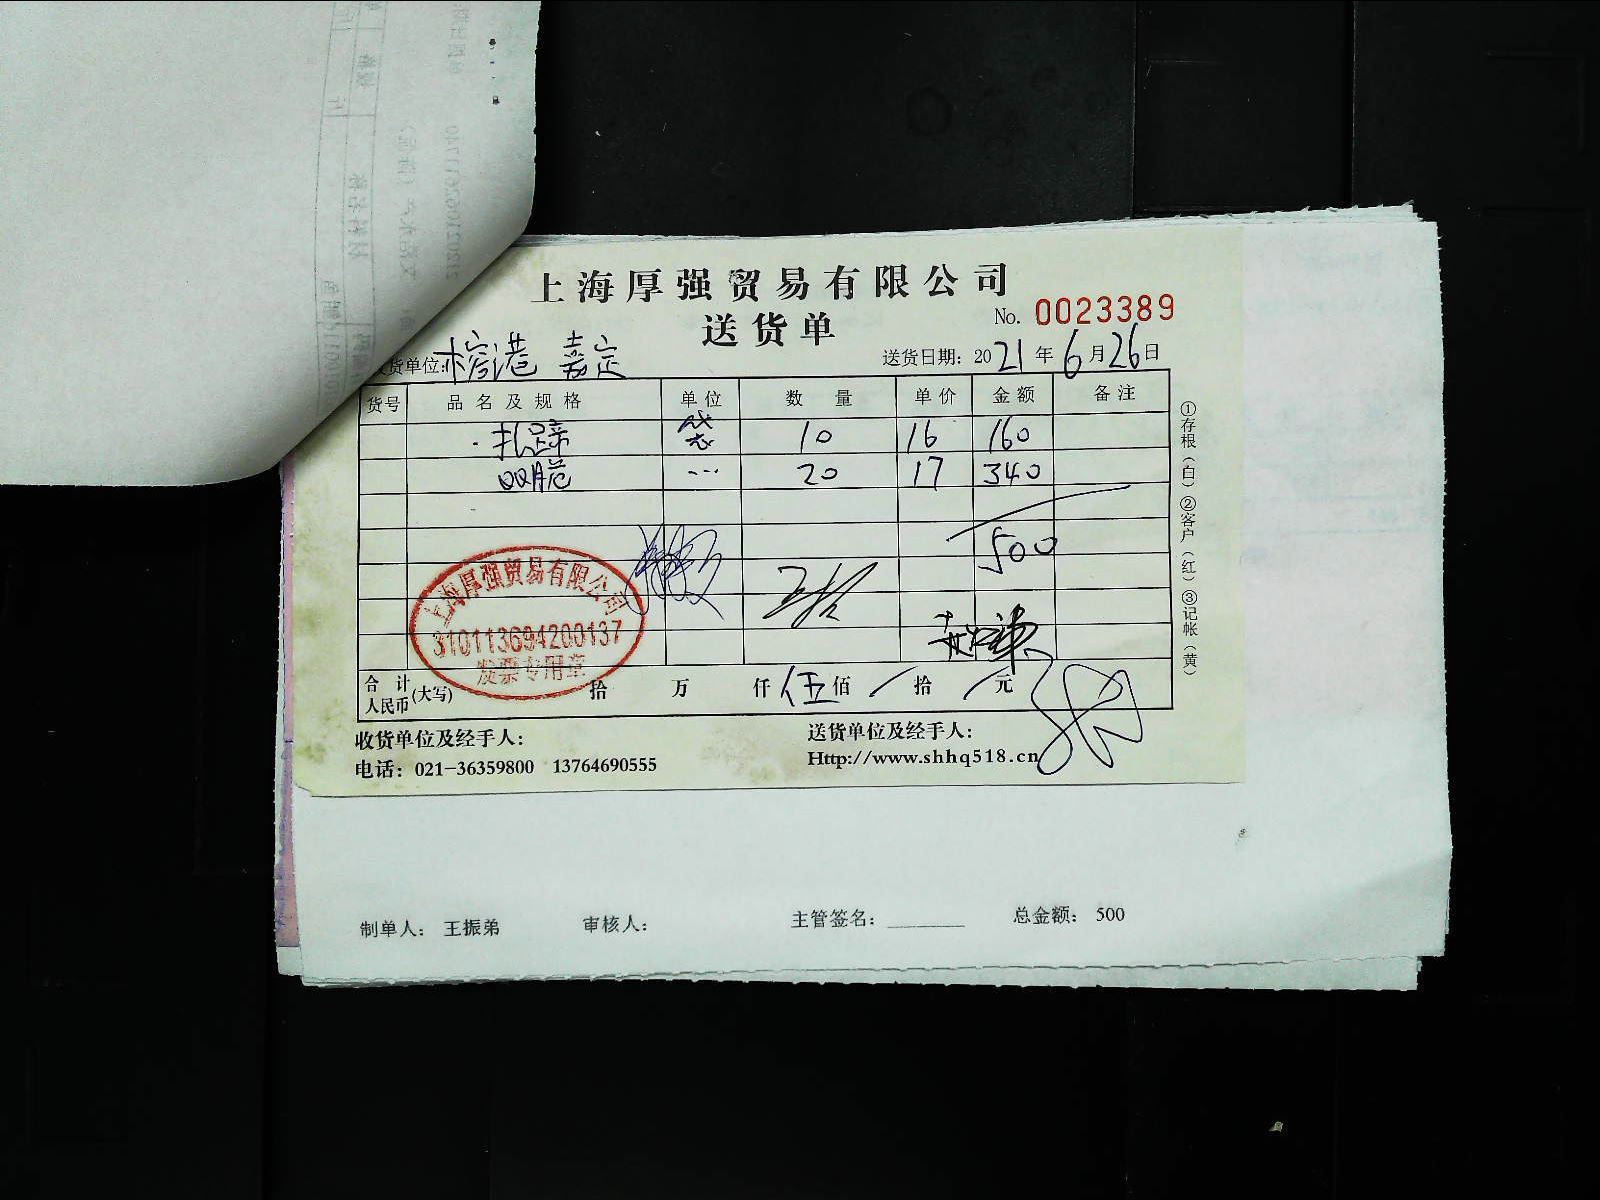 上海厚强贸易有限公司
送货单
No. 0023389
货单位: 榕港 嘉定
送货日期: 2021年6月26日
货号 品名及规格 单位 数量 单价 金额 备注
扎蹄 袋 10 16 160
20 17 340
500
上海厚强贸易有限公司
310113694200137
发票专用章
合计人民币(大写) 拾 万 仟 伍佰 拾 元
收货单位及经手人:
送货单位及经手人:
电话: 021-36359800 13764690555
Http://www.shhq518.cn
①存根(白) ②客户(红) ③记帐(黄)
制单人: 王振弟 审核人: 主管签名: ________ 总金额: 500